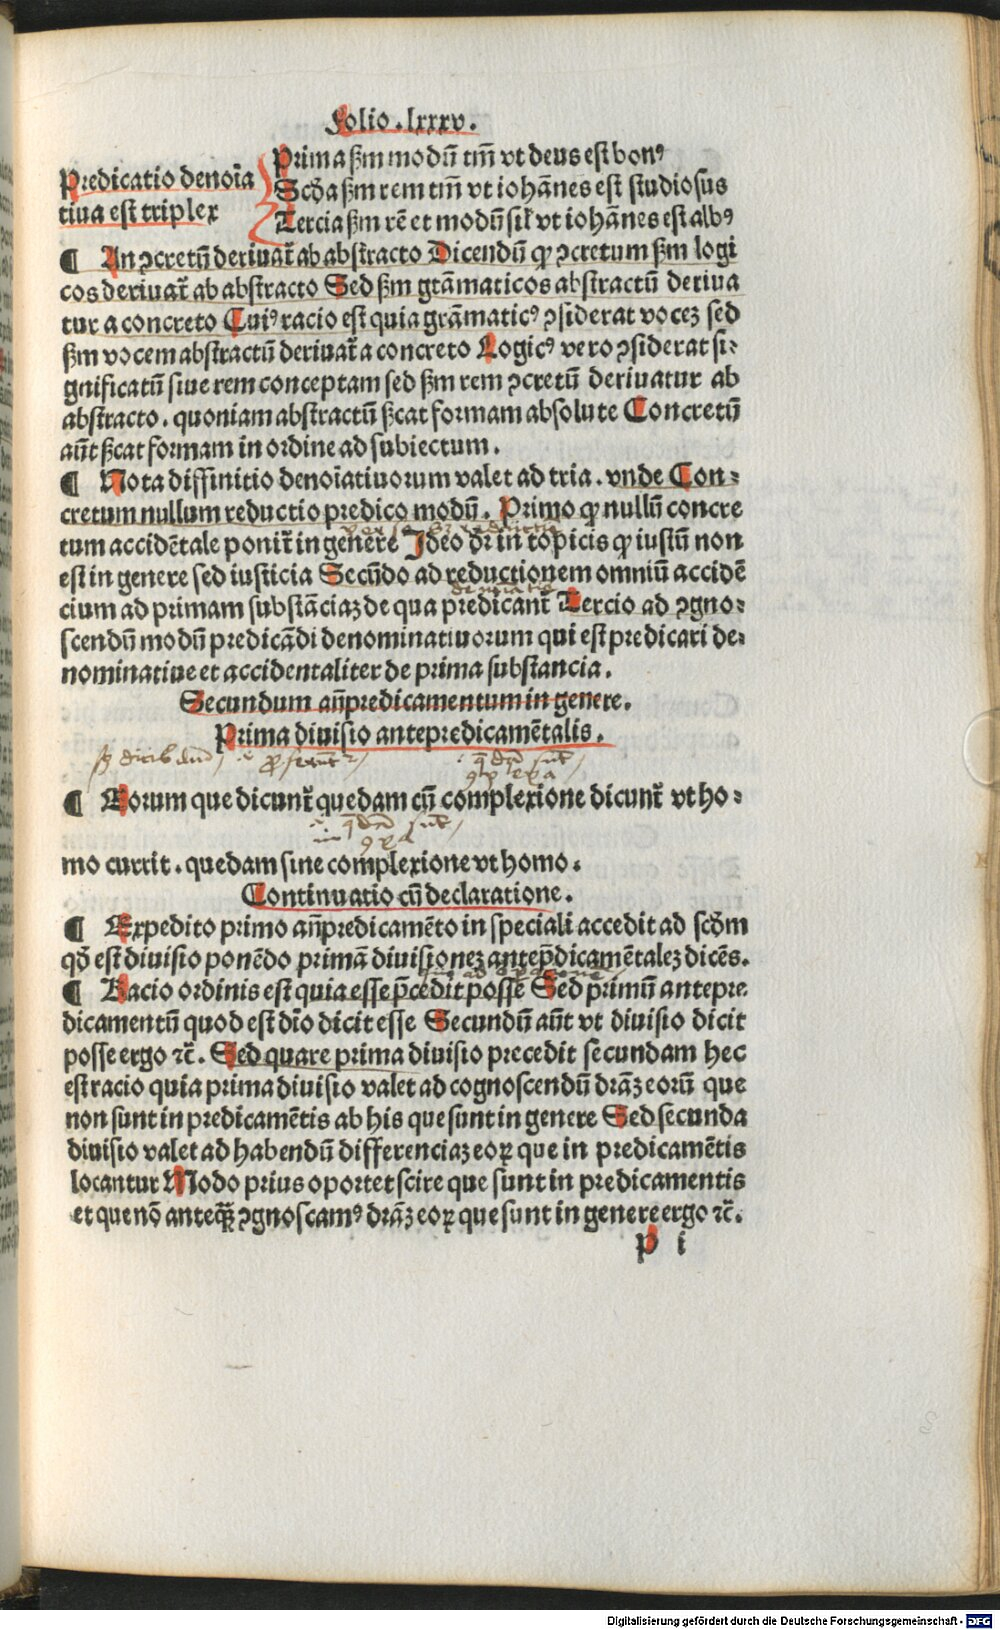 Folio.lxxxv.
Predicatio denoīa
tiua est triplex
Prima ẜm modū tm̄ vt deus est bonꝰ
Scd̓a ẜm rem tm̄ vt iohānes est studiosus
Tercia ẜm rē et modū sil̓ vt iohānes est albꝰ
¶ An ꝯcretū deriuat̄ ab abstracto Dicendū ꝙ ꝯcretum ẜm logi
cos deriuat̄ ab abstracto Sed ẜm grāmaticos abstractū deriua
tur a concreto Cuiꝰ racio est quia grāmaticꝰ ꝯsiderat vocez sed
ẜm vocem abstractū deriuat̄ a concreto Logicꝰ vero ꝯsiderat si⸗
gnificatū siue rem conceptam sed ẜm rem ꝯcretū deriuatur ab
abstracto. quoniam abstractū ẜcat formam absolute Concretū
aūt ẜcat formam in ordine ad subiectum.
¶ Nota diffinitio denoīatiuorum valet ad tria. vnde Con⸗
cretum nullum reductio predico modū. Primo ꝙ nullū concre
tum accidētale ponit̄ in genere Ideo dr̄ in topicis ꝙ iustū non
est in genere sed iusticia Secūdo ad reductionem omniū accidē
cium ad primam substāciaz de qua predicant̄ Tercio ad ꝯgno⸗
scendū modū predicādi denominatiuorum qui est predicari de⸗
nominatiue et accidentaliter de prima substancia.
Secundum an̄predicamentum in genere.
Prima diuisio antepredicamētalis.
¶ Eorum que dicunt̄ quedam cū complexione dicunt̄ vt ho⸗
mo currit. quedam sine complexione vt homo.
Continuatio cū declaratione.
¶ Expedito primo an̄predicamēto in speciali accedit ad scd̓m
qd̓ est diuisio ponēdo primā diuisionez antep̄dicamētalez dicēs.
¶ Racio ordinis est quia esse p̄cedit posse Sed primū antepre⸗
dicamentū quod est dīo dicit esse Secundū aūt vt diuisio dicit
posse ergo ⁊c̄. Sed quare prima diuisio precedit secundam hec
est racio quia prima diuisio valet ad cognoscendū drāz eorū que
non sunt in predicamētis ab his que sunt in genere Sed secunda
diuisio valet ad habendū differenciaz eoꝝ que in predicamētis
locantur Modo prius oportet scire que sunt in predicamentis
et que nō anteqꝫ̄ ꝯgnoscamꝰ drāz eoꝝ que sunt in genere ergo ⁊c̄.
p i
Digitalisierung gefördert durch die Deutsche Forschungsgemeinschaft - DFG